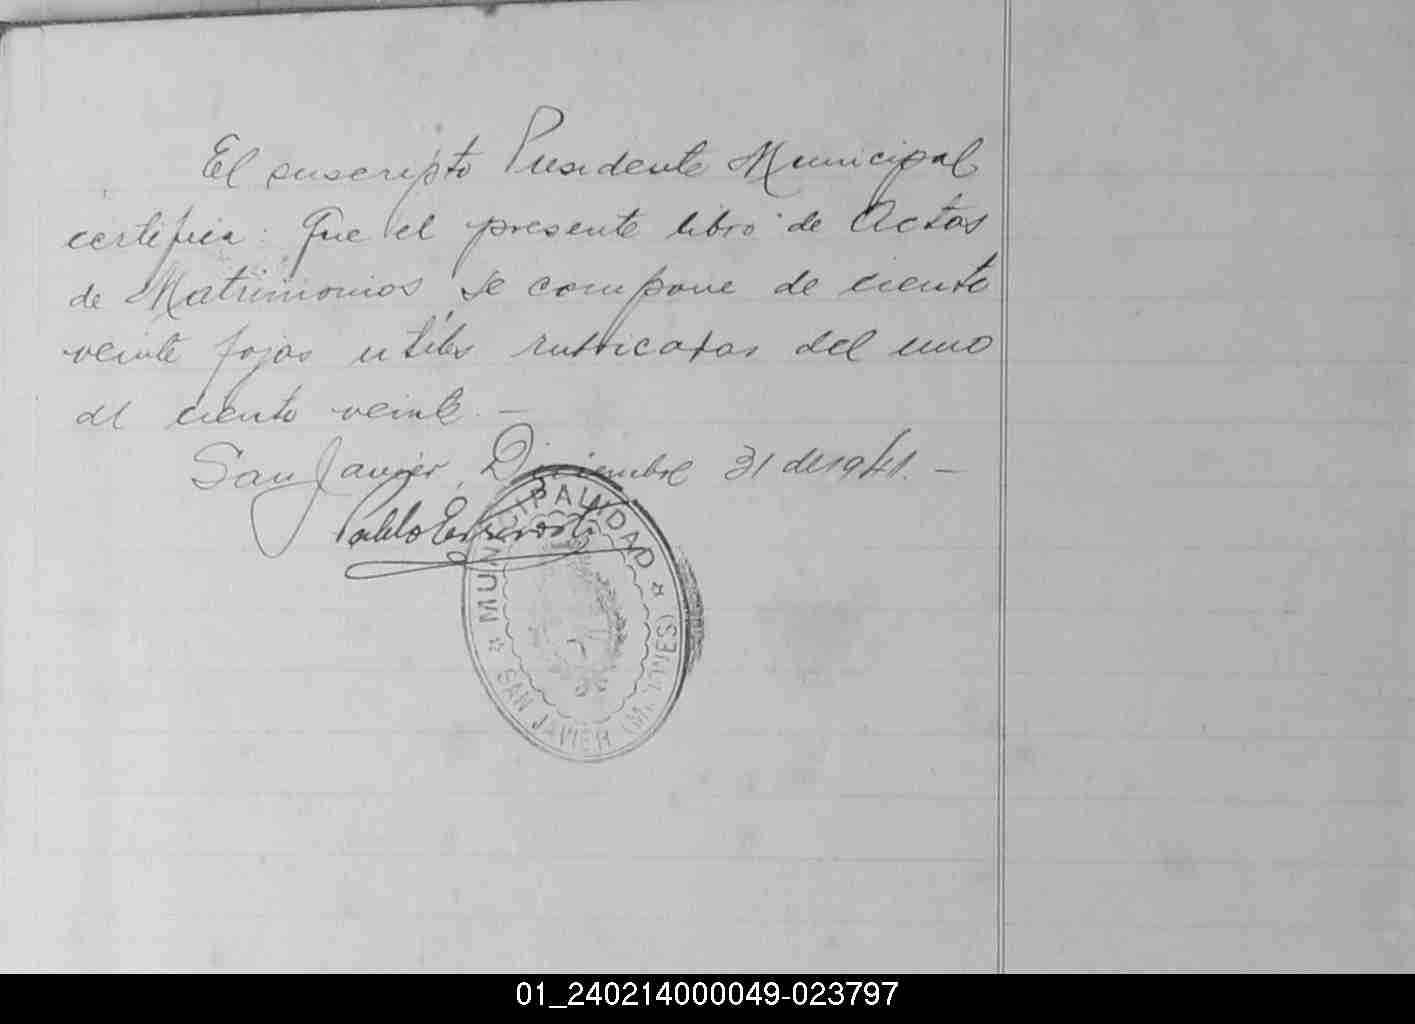 El suscripto Presidente Municipal
certifica: Que el presente libro de Actas
de Matrimonios se compone de ciento
veinte fojas utiles rubricadas del uno
al ciento veinte. —
San Javier, Diciembre 31 de 1941. —
Pablo
MUNICIPALIDAD
SAN JAVIER (MISIONES)
01_240214000049-023797